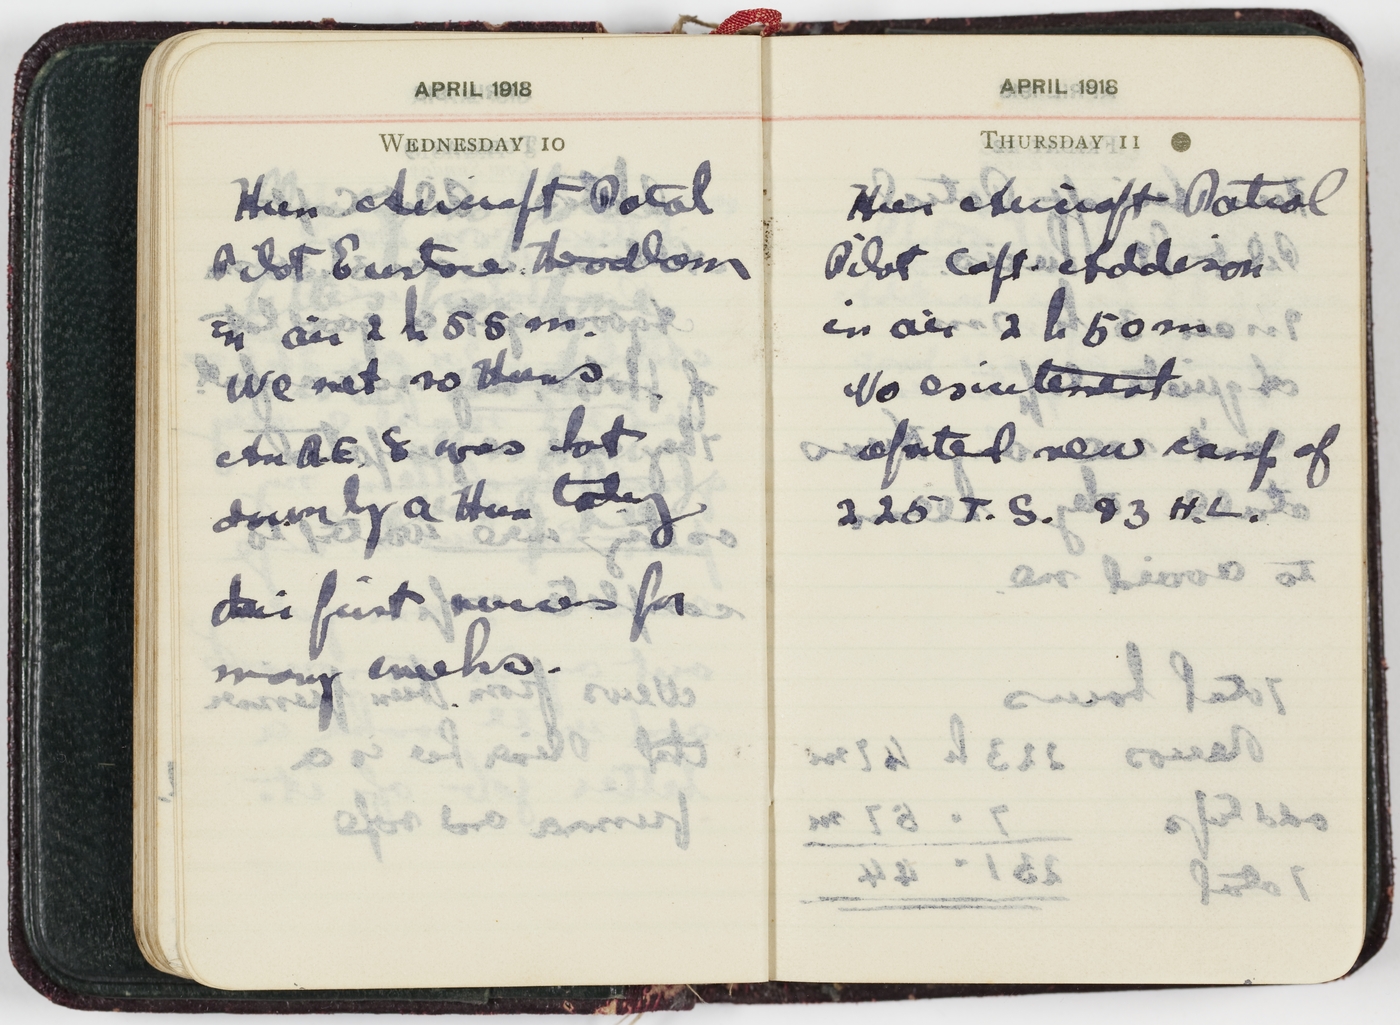 APRIL 1918
WEDNESDAY 10
Hun Aircraft Patrol
Pilot Eustace Headlam
in air 2 h 55 m.
We met no Huns
An R.E. 8 was shot
down by a Hun today
their first success for
many weeks.
APRIL 1918
THURSDAY 11
Hun Aircraft Patrol
Pilot Capt. Addison
in air 2 h 50 m
No excitement
new camp of
225 T. S. 93 H.L.